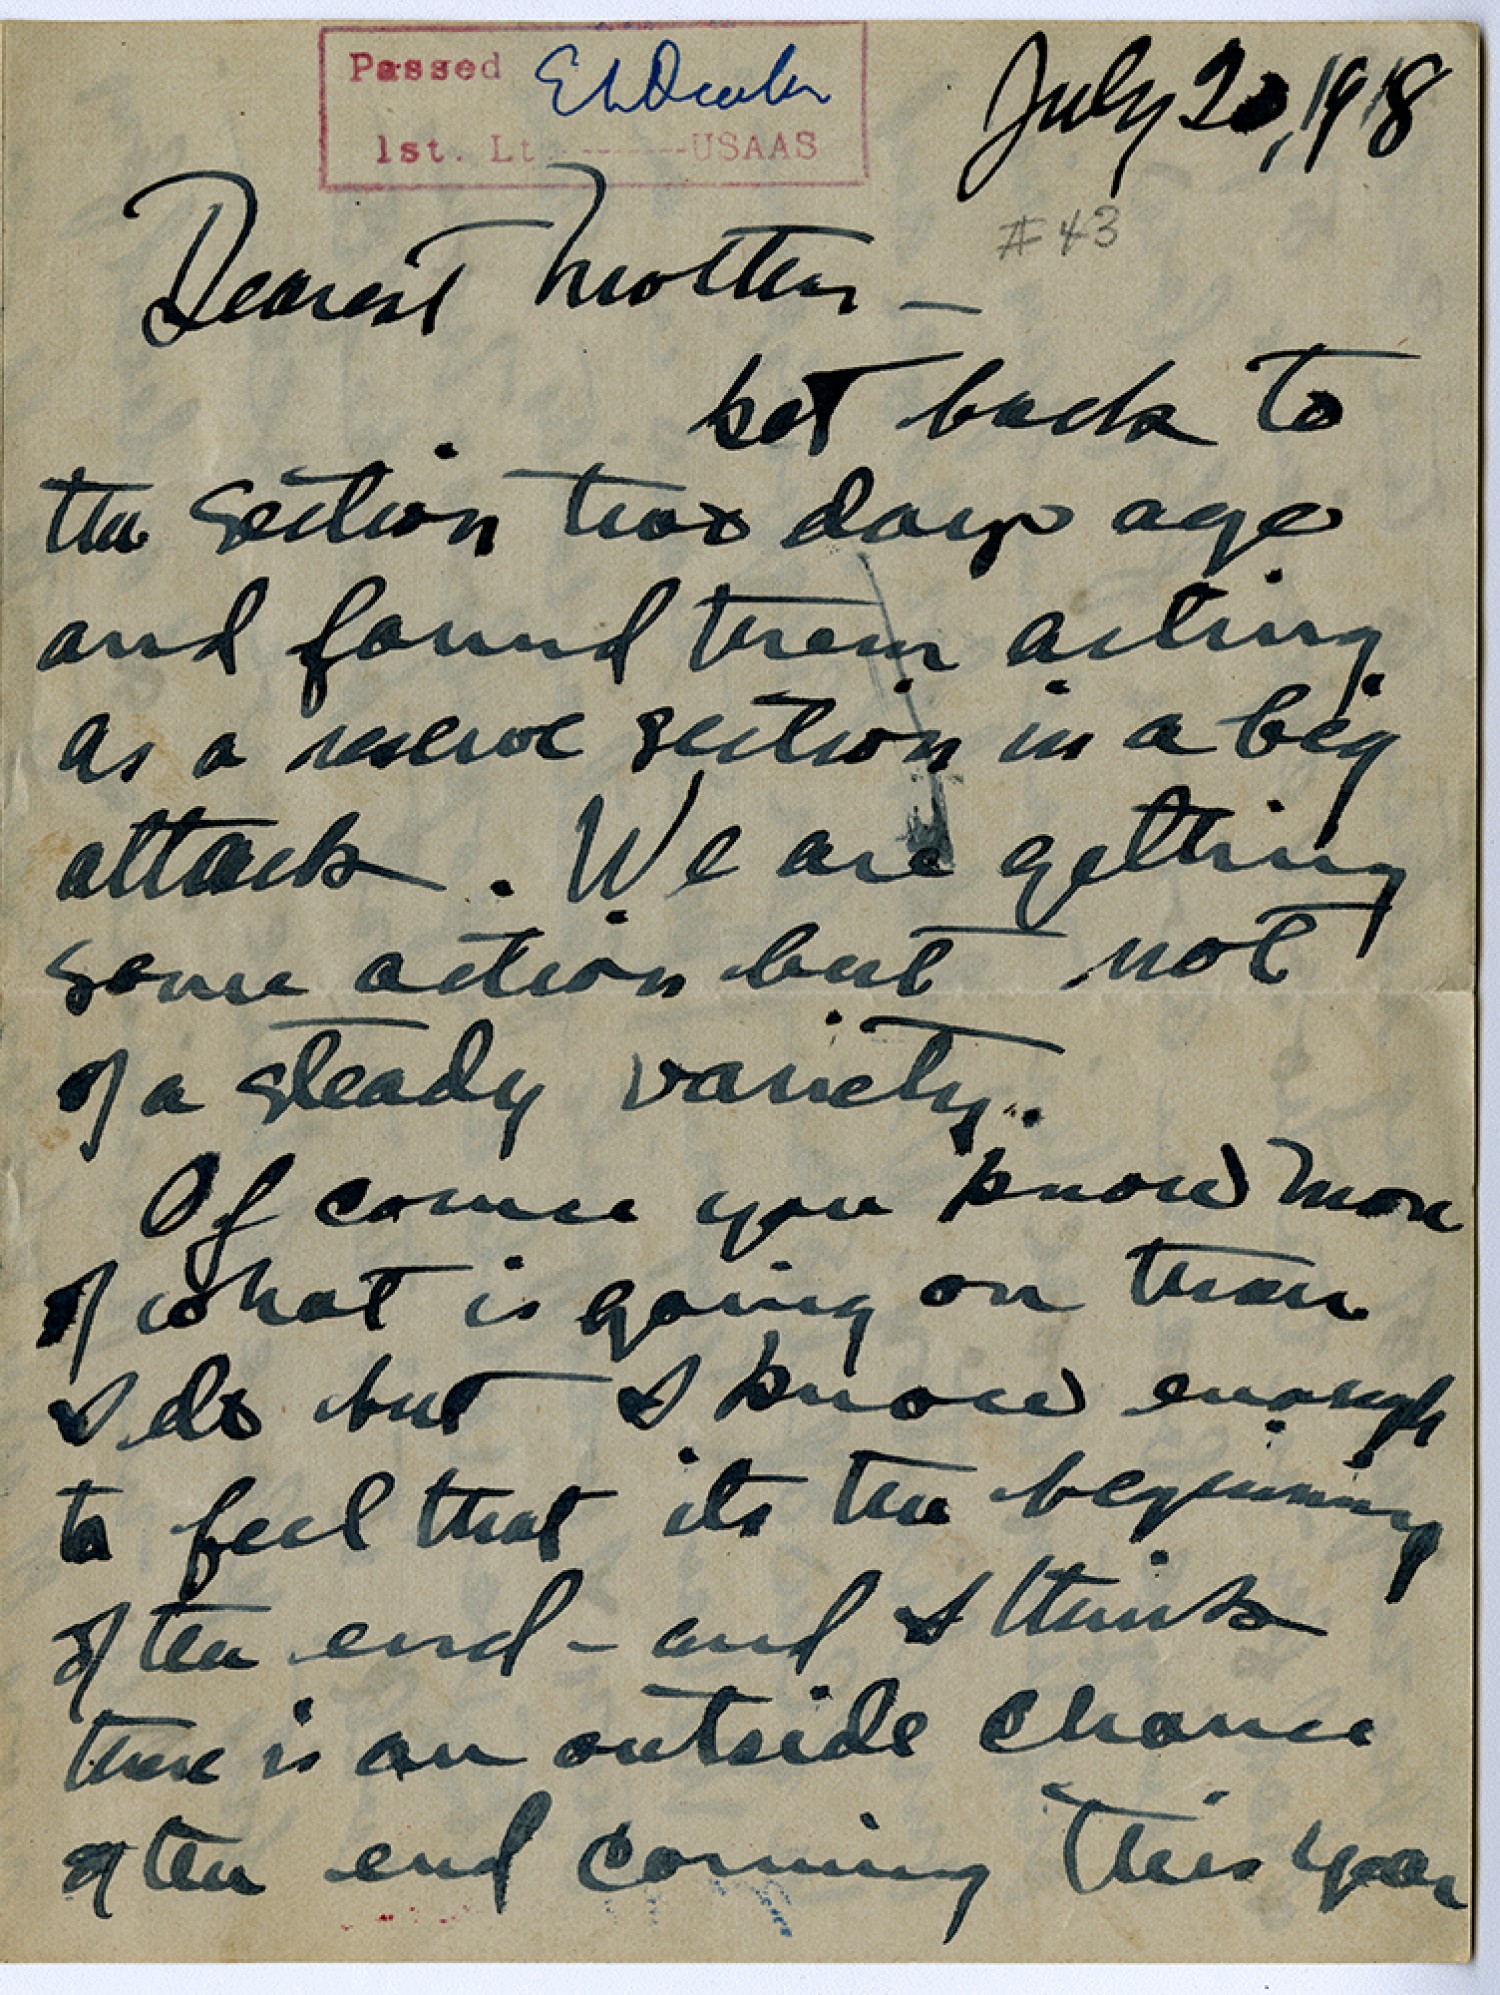 Passed
1st. Lt ------- USAAS
July 20, 1918
#43
Dearest Mother –
Got back to
the section two days ago
and found them acting
as a reserve section in a big
attack. We are getting
some action but not
of a steady variety.
Of course you know more
of what is going on than
I do but I know enough
to feel that its the beginning
of the end – and I think
there is an outside chance
of the end coming this year